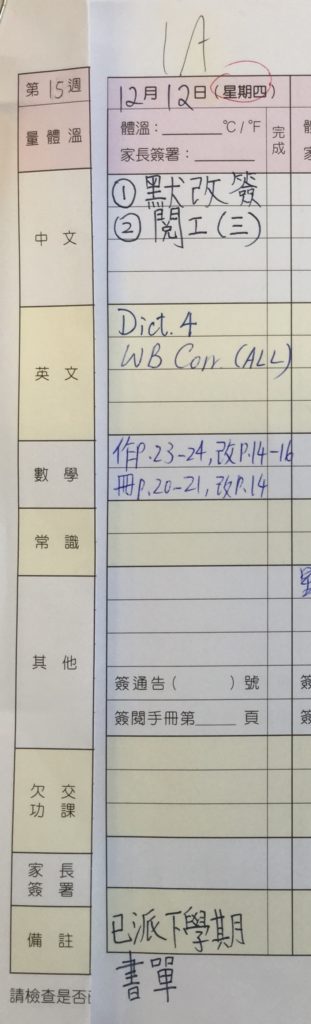 1A
第15週
12月12日(星期四)
量體溫
體溫:______°C/°F
家長簽署:______
完成
中文
① 默改簽
② 閱工(三)
英文
Dict. 4
WB Corr. (ALL)
數學
作p.23-24,改p.14-16
冊p.20-21,改p.14
常識
其他
簽通告( )號
簽閱手冊第____頁
欠交功課
家長簽署
備註
已派下學期
書單
請檢查是否